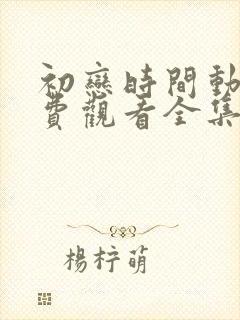 初戀時間動
費觀看全集
楊梓萌